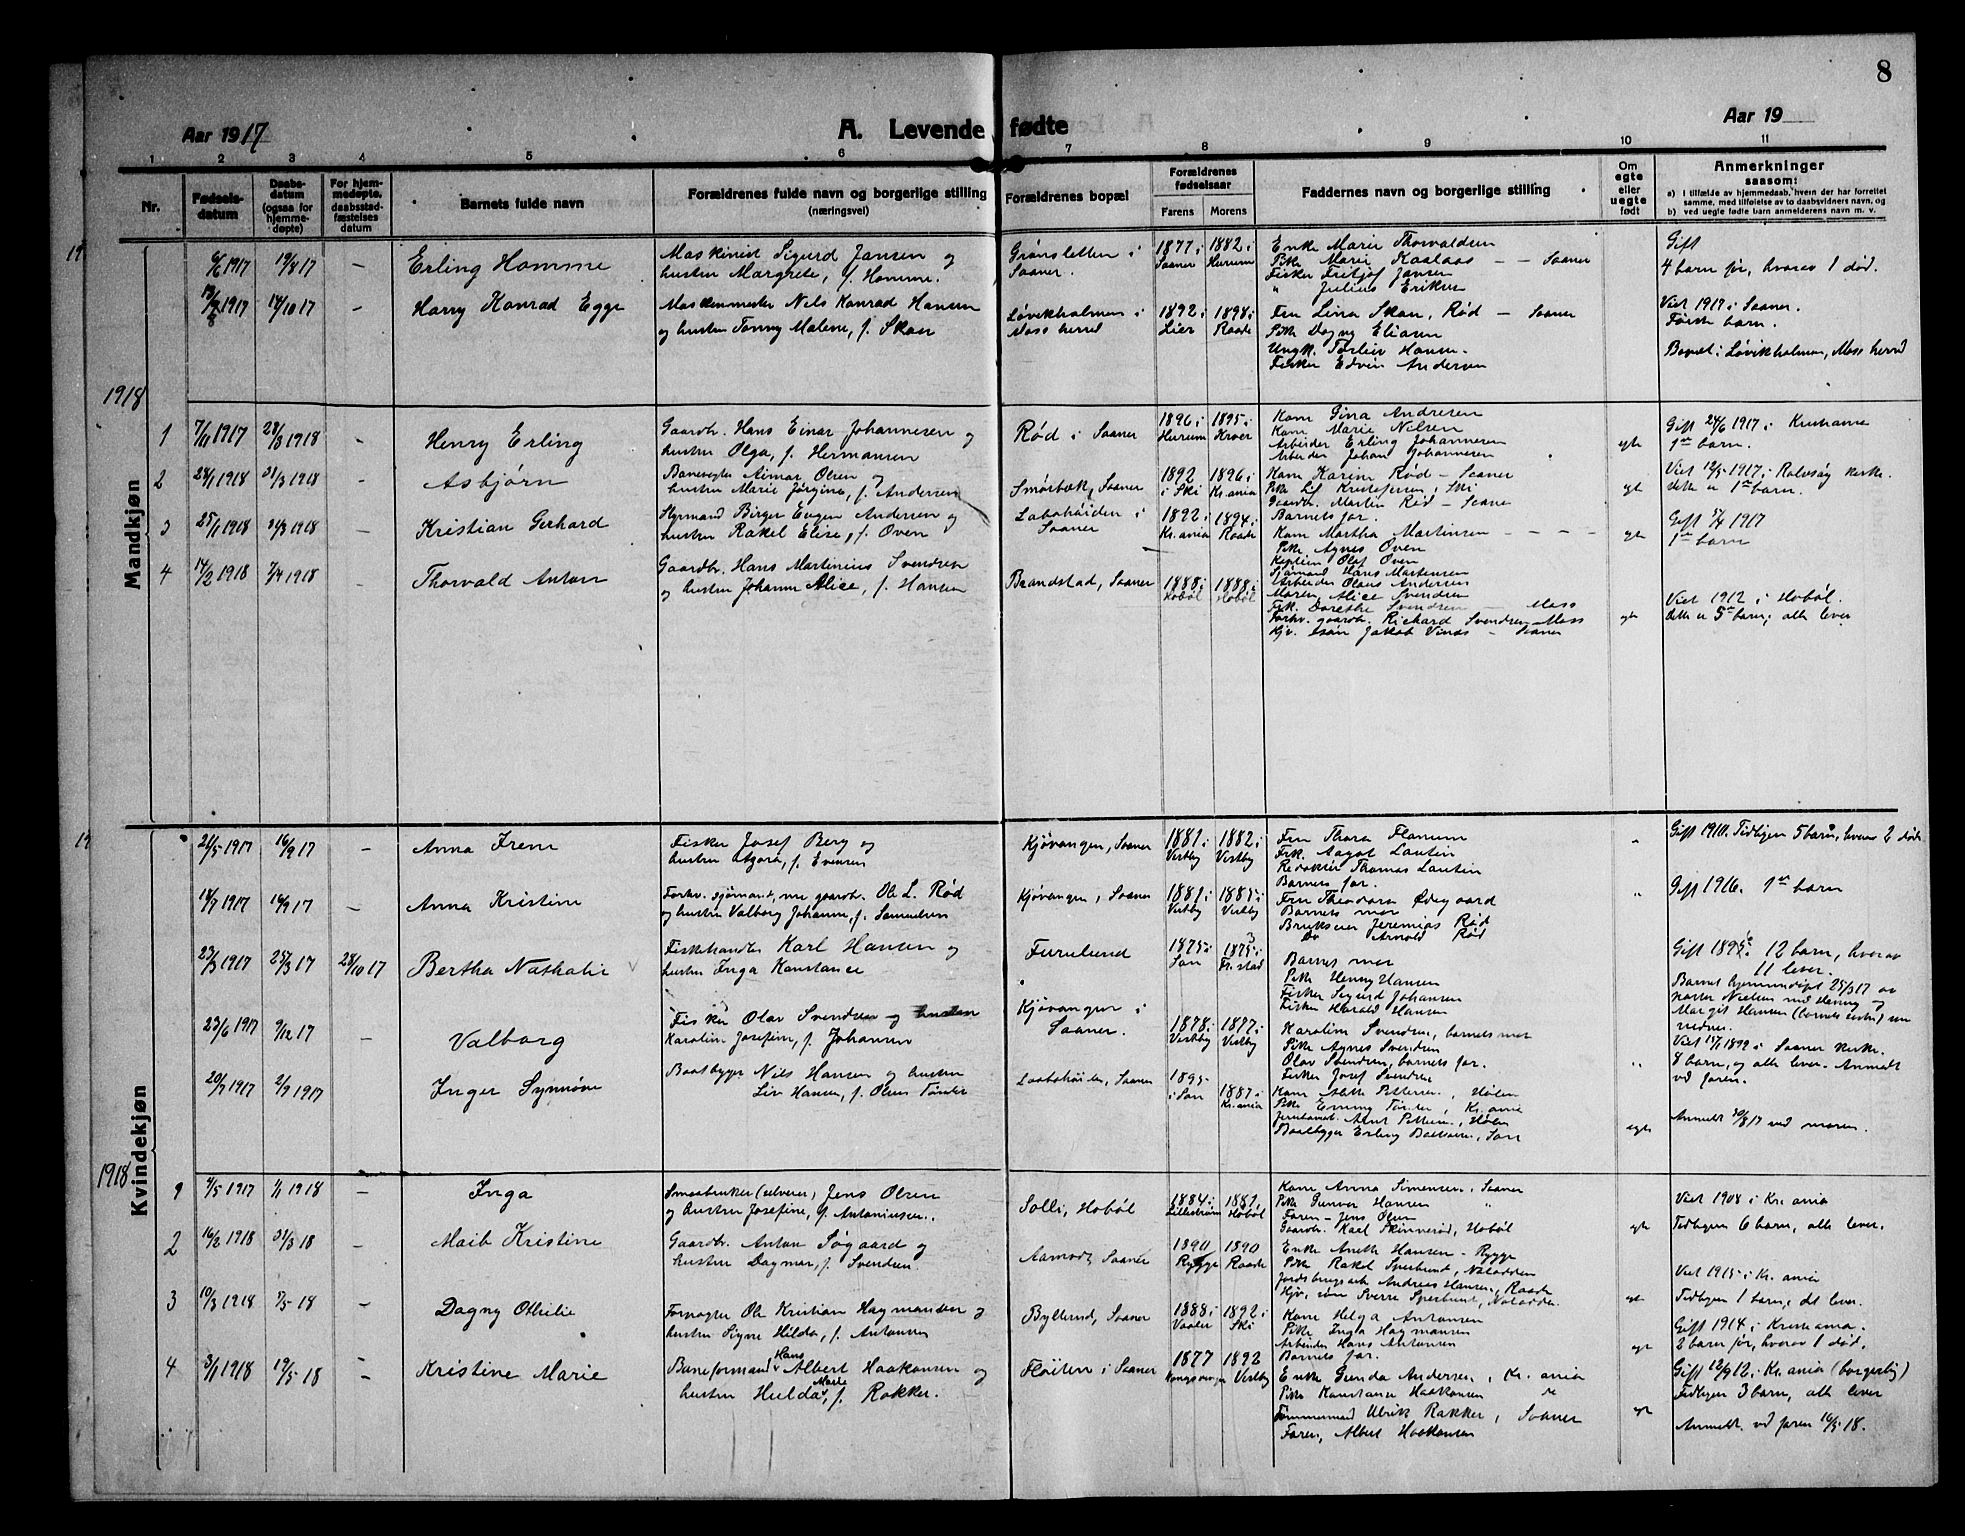 8
Aar 1917
A. Levende fødte
Aar 19
1 2 3 4 5 6 7 8 9 10 11
Nr.
Fødsels-
datum
Daabs-
datum
(ogsaa for
hjemme-
døpte)
For hjem-
medøpte,
daabsstad-
fæstelses
datum
Barnets fulde navn
Forældrenes fulde navn og borgerlige stilling
(næringsvei)
Forældrenes bopæl
Forældrenes
fødselsaar
Farens Morens
Faddernes navn og borgerlige stilling
Om
egte
eller
uegte
født
Anmerkninger
saasom:
a) I tilfælde av hjemmedaab, hvem der har forrettet
samme, med tilføielse av to daabsvidners navn, og
b) ved uegte fødte barn anmelderens navn m. v.
Mandkjøn
6/6 1917 19/8 17 – Erling Homme
Maskinist Sigurd Jansen og
hustru Margrete, f. Homme.
Grønsletten i
Saaner.
1877 i
Saaner
1882 i
Hurum
Enke Marie Thorvaldsen
Pike Marie Kaalaas – – Saaner
Fisker Fritjof Jansen
" Julius Eriksen
Gift
4 barn før, hvorav 1 død.
1917 14/10 17 Harry Konrad Egge
Maskinmester Nils Konrad Hansen
og hustru Tonny Malene, f. Skar
Løvikholmen i
Moss herred
1892 i
Lier
1898 i
Raade
Fru Lina Skar, Rød – Saaner
Pike Dagny Eliasen
Ungk. Torleiv Hansen.
Fisker Edvin Andersen
Viet 1917 i Saaner.
Første barn.
Bopæl i Løvikholmen, Moss herred
1918
1 7/11 1917 28/3 1918 – Henry Erling
Gaardbr. Hans Einar Johannesen og
hustru Olga, f. Hermansen
Rød i Saaner
1896 i
Hurum
1895 i
Kroer
Kone Gina Andresen
Kone Marie Nilsen
Arbeider Erling Johannesen
Arbeider Johan Johannesen
egte
Gift 24/6 1917 i Kristiania
1ste barn.
2 28/1 1918 31/3 1918 – Asbjørn
Banevogter Aimar Olsen og
hustru Marie Jørgine, f. Andersen
Smørbæk, Saaner
1892
i Ski
1896 i
Kr.ania
Kone Karine Rød – Saaner
Pike Lif Kristofersen, Ski
Gaardbr. Martin Rød – Saaner
Barnets far.
egte
Viet 12/5 1917 i Rolvsøy kirke.
dette er 1ste barn.
3 25/1 1918 24/3 1918 – Kristian Gerhard
Styrmand Birger Eugen Andersen og
hustru Rakel Elise, f. Oven
Labohøiden i
Saaner
1892 i
Kr.ania
1894 i
Raade
Kone Martha Martinsen – – –
Pike Agnes Oven
Kaptein Olaf Oven
Sjømand Hans Martensen
Arbeider Olaus Andersen
egte
Gift 5/4 1917
1ste barn
4 14/2 1918 7/4 1918 – Thorvald Anton
Gaardbr. Hans Martinius Svendsen
og hustru Johanne Alice, f. Hansen
Brandstad, Saaner
1888 i
Hobøl
1888 i
Hobøl
Moren, Alice Svendsen
Frk. Dorethe Svendsen – Moss
Forhv. gaardbr. Richard Svendsen – Moss
Kjv. Isøn Jakob Vinæs – Saaner
egte
Viet 1912 i Hobøl.
Dette er 5te barn; alle lever
Kvindekjøn
21/5 1917 16/9 17 – Anna Irene
Fisker Josef Berg og
hustru Agora, f. Evensen
Kjøvangen, Saaner
1881 i
Vestby
1882 i
Vestby
Fru Thora Flonum
Frk. Aagot Lautin
Redaktør Thomas Lautin
Barnets far.
"
Gift 1910. Tidligere 5 barn, hvorav 2 døde
18/7 1917 16/9 17 – Anna Kristine
Forhv. sjømand, nu gaardbr. Ole L. Rød
og hustru Valborg Johanne, f. Samuelsen
Kjøvangen, Saaner
1881 i
Vestby
1885 i
Vestby
Fru Theodora Ødegaard
Barnets mor
Brukseier Jeremias Rød
Do Arnold Rød
"
Gift 1916. 1ste barn
23/3 1917 25/3 17 28/10 17 Bertha Nathalie
Fiskehandler Karl Hansen og
hustru Inga Konstance
Furulund
1875 i
Son
1875 i
Fr.stad
Barnets mor
Pike Henny Hansen
Fisker Sigurd Johansen
Fisker Harald Hansen
Gift 1895. 12 barn, hvorav
11 lever.
Barnet hjemmedøpt 25/3 17 av
pastor Nielsen med Henny og
Margit Hansen (barnets søstre) som
vidner.
23/6 1917 9/12 17 – Valborg
Fisker Olav Svendsen og hustru
Karoline Josefine, f. Johansen
Kjøvangen i
Saaner.
1878 i
Vestby
1877 i
Vestby
Karoline Svendsen, barnets mor
Pike Agnes Svendsen
Olav Svendsen, barnets far.
Fisker Josef Svendsen
"
Viet 1899 i Saaner kirke.
8 barn, og alle lever. Anmeldt
ved faren.
20/7 1917 2/9 1917 Inger Synnøve
Baatbygger Nils Hansen og hustru
Liv Hansen, f. Olsen Tønder
Laabohøiden, Saaner
1895
i Son
1887 i
Kr.ania
Kone Aleth Pettersen, Hølen
Pike Emmy Tønder, Kr.ania
Jernbanebet. Arnt Pettersen, Hølen
Baatbygger Erling Baltsersen, Son
egte
Anmeldt 30/8 17 ved moren.
1918
1 9/5 1917 1/1 1918 – Inga
Smaabruker (selveier) Jens Olsen
og hustru Josefine, f. Antoniusen.
Solli, Hobøl
1884 i
Lillestrøm
1881 i
Hobøl
Kone Anna Simensen, Saaner
Pike Gunvor Hansen "
Faren – Jens Olsen
Gaardbr. Karl Skinnerød, Hobøl
egte
Viet 1908 i Kr.ania
Tidligere 6 barn, alle lever.
2 16/2 1918 31/3 18 – Maib Kristine
Gaardbr. Anton Søgaard og
hustru Dagmar, f. Svendsen
Aamodt, Saaner
1890
Rygge
1890
Raade
Enke Aneth Hansen – Rygge
Pike Rakel Sperbund, Notodden
Jordbruksarb. Andreas Hansen, Raade
Kjv. søn Sverre Sperbund, Notodden
egte
Viet 1915 i Kr.ania
Tidligere 1 barn, det lever.
3 10/3 1918 9/5 18 – Dagny Othilie
Fornøgter Ole Kristian Hagmansen og
hustru Signe Hilda, f. Antonsen
Byllerud, Saaner
1888 i
Vaaler
1892 i
Ski
Kone Helga Antonsen
Pike Inga Hagmansen
Arbeider Hans Antonsen
Barnets far.
egte
Gift 1914 i Kristiania.
2 barn før, hvorav 1 død.
4 3/1 1918 19/5 18 – Kristine Marie
Baneformand Hans Albert Haakonsen og
hustru Hulda Marie, f. Rakker.
Fløiten i Saaner
1877
Kongsvinger
1892
Vestby
Enke Gunda Andersen, Kr.ania
Pike Konstanse Haakonsen do
Tømmermand Ulrik Rakker, Saaner
Faren, Albert Haakonsen
egte
Gift 12/9 12 i Kr.ania (borgerlig)
Tidligere 3 barn, alle lever
Anmeldt ved faren 16/5 18.